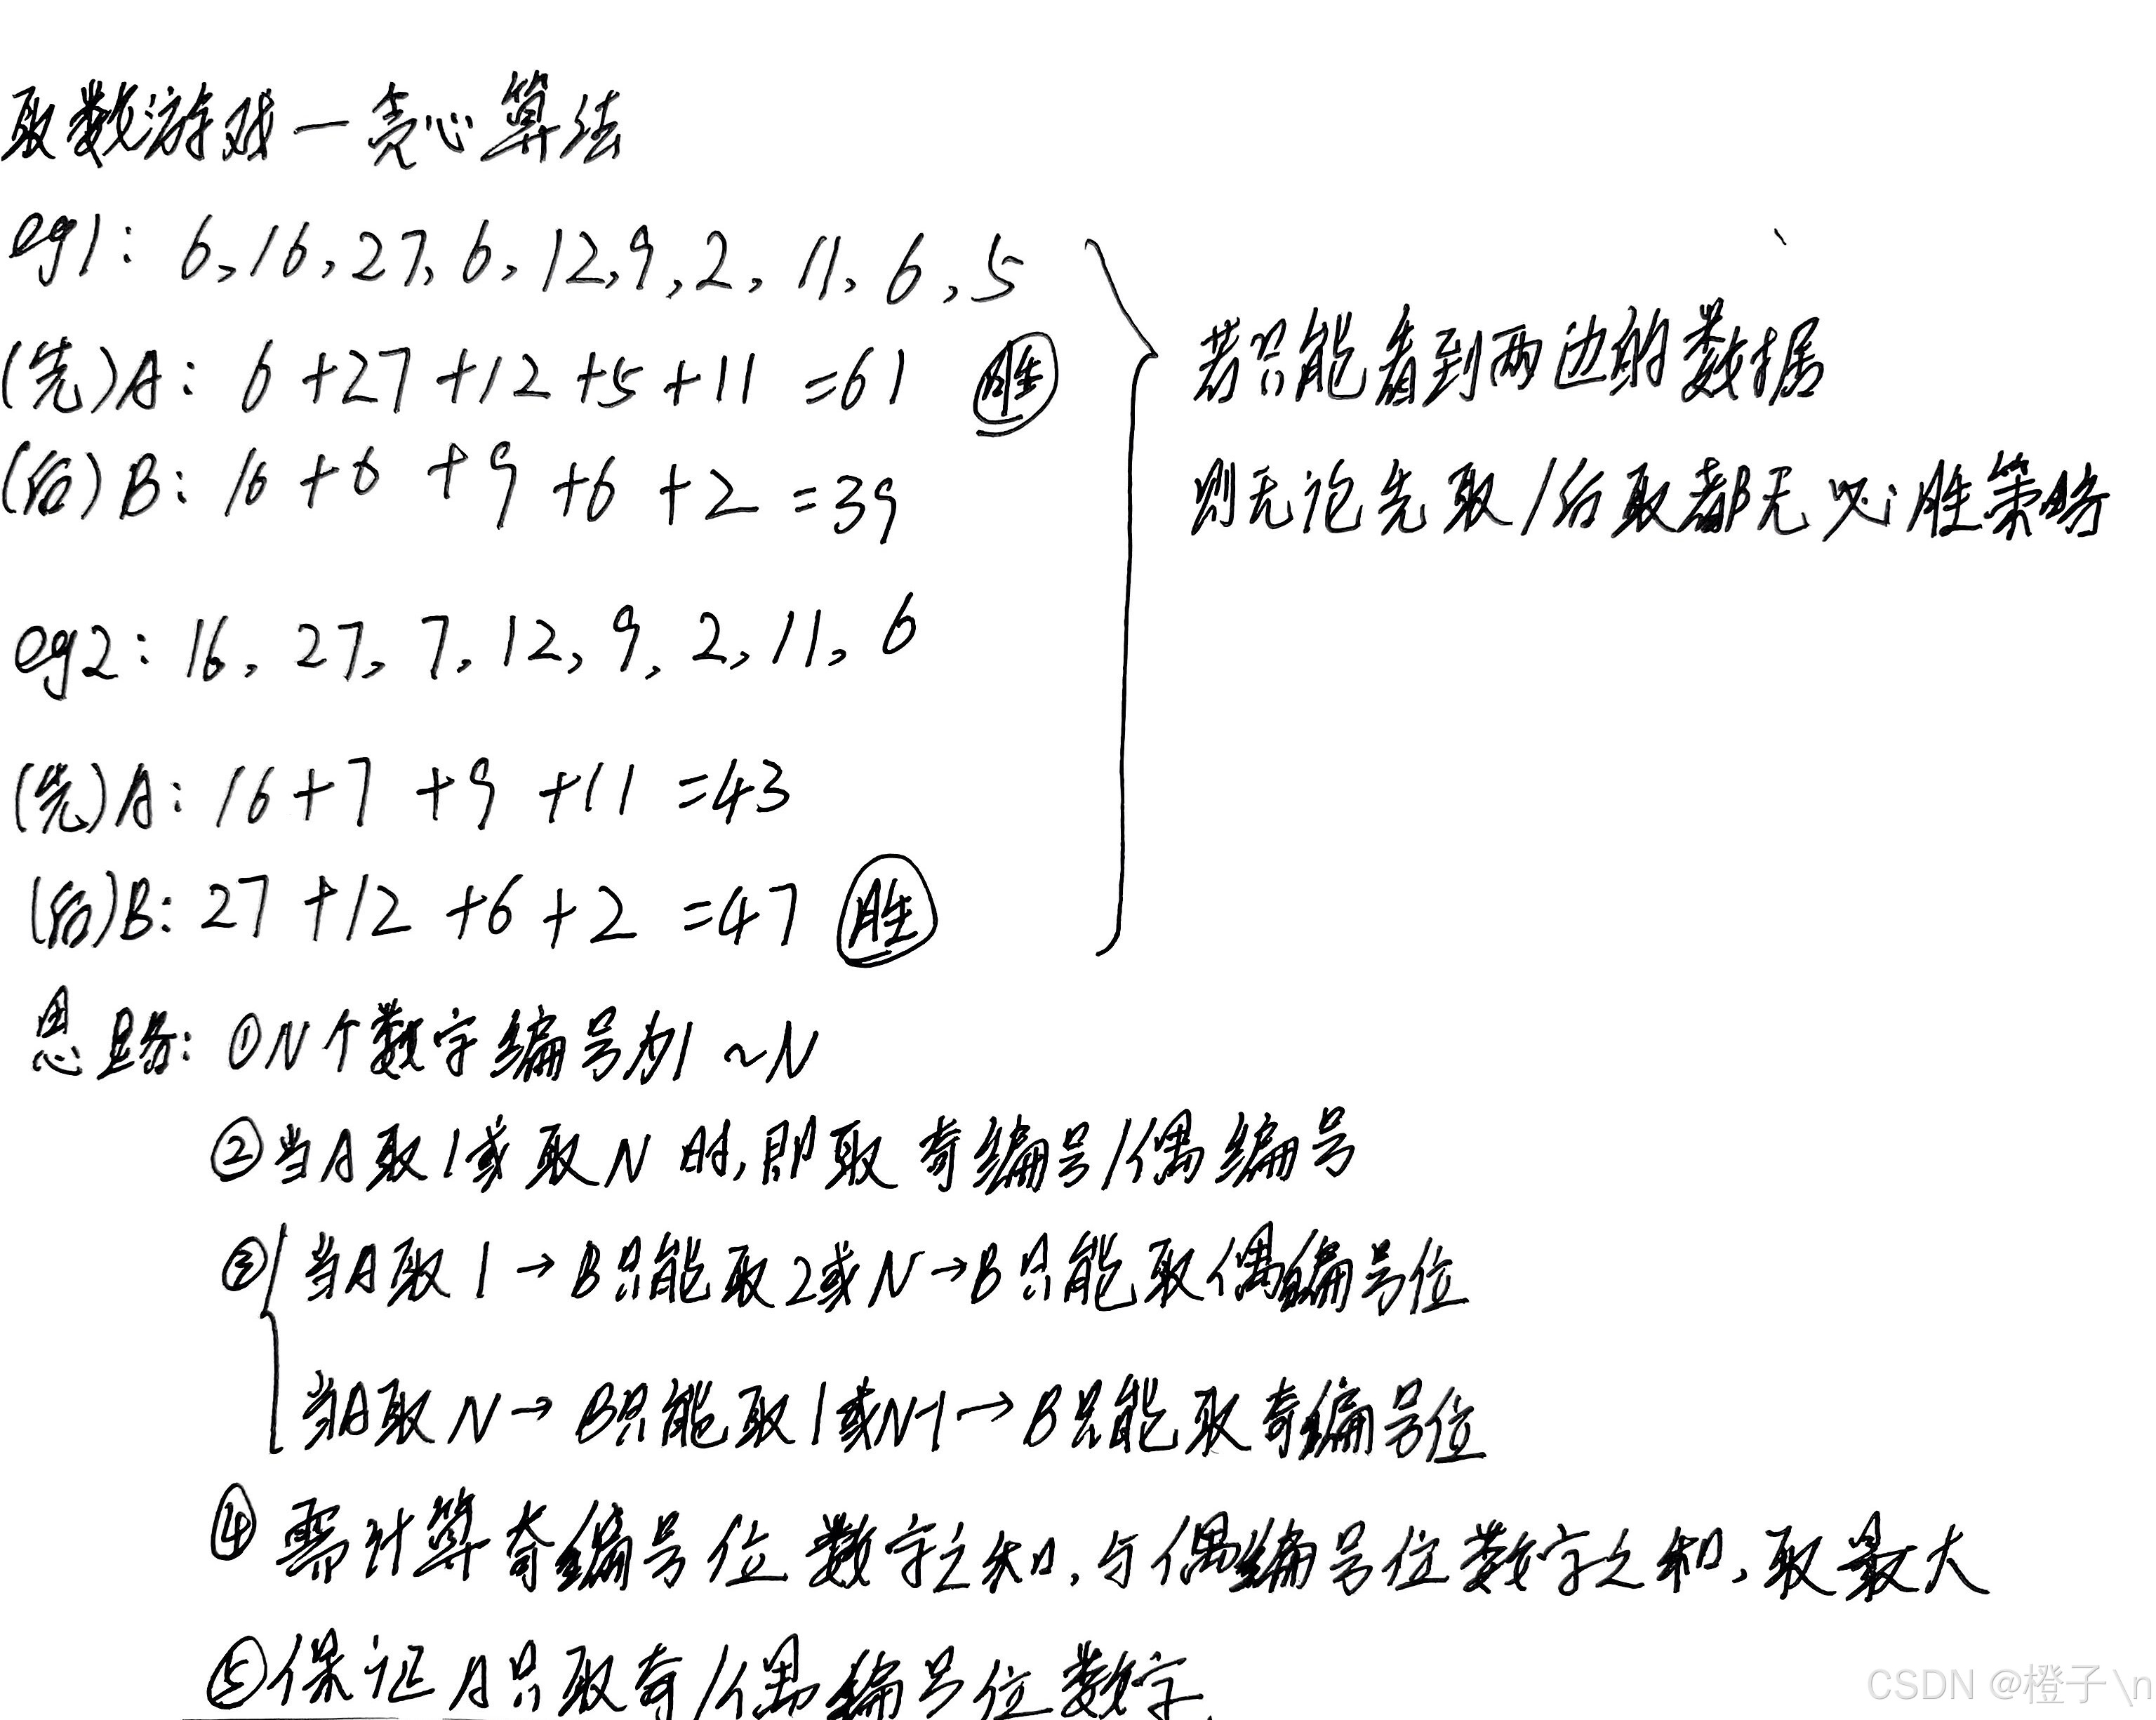 取数游戏一贪心算法
eg1: 6,16,27,6,12,9,2,11,6,5
(先)A: 6+27+12+5+11=61 胜
(后)B: 16+6+9+6+2=39
若只能看到两边的数据
则无论先取/后取都无必胜策略
eg2: 16,27,7,12,9,2,11,6
(先)A: 16+7+9+11=43
(后)B: 27+12+6+2=47 胜
思路: ①N个数字编号为1~N
②当A取1或取N时,即取奇编号/偶编号
③当A取1→B只能取2或N→B只能取偶编号位
当A取N→B只能取1或N-1→B只能取奇编号位
④需计算奇编号位数字之和,与偶编号位数字之和,取最大
⑤保证A只取奇/偶编号位数字
CSDN @橙子\n